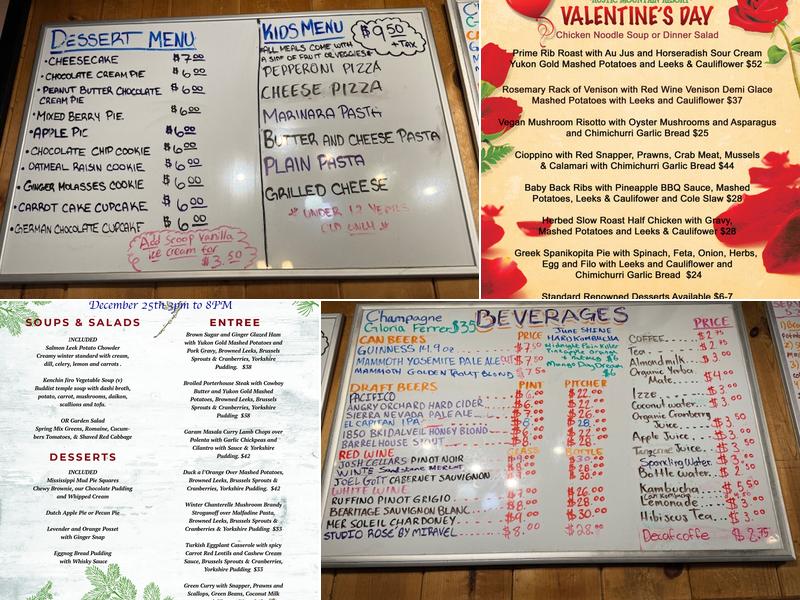 DESSERT MENU
• CHEESECAKE $7.00
• CHOCOLATE CREAM PIE $6.00
• PEANUT BUTTER CHOCOLATE $6.00
CREAM PIE
• MIXED BERRY PIE $6.00
• APPLE PIE $6.00
• CHOCOLATE CHIP COOKIE $6.00
• OATMEAL RAISIN COOKIE $6.00
• GINGER MOLASSES COOKIE $6.00
• CARROT CAKE CUPCAKE $6.00
• GERMAN CHOCOLATE CUPCAKE $6.00
Add Scoop Vanilla
ice cream for
$3.50
KIDS MENU
$9.50
+ TAX
ALL MEALS COME WITH
A SIDE OF FRUIT OR VEGGIES
PEPPERONI PIZZA
CHEESE PIZZA
MARINARA PASTA
BUTTER AND CHEESE PASTA
PLAIN PASTA
GRILLED CHEESE
* UNDER 12 YEARS
OLD ONLY *
RUSTIC MOUNTAIN RESORT
VALENTINE'S DAY
Chicken Noodle Soup or Dinner Salad
Prime Rib Roast with Au Jus and Horseradish Sour Cream
Yukon Gold Mashed Potatoes and Leeks & Cauliflower $52
Rosemary Rack of Venison with Red Wine Venison Demi Glace
Mashed Potatoes with Leeks and Cauliflower $37
Vegan Mushroom Risotto with Oyster Mushrooms and Asparagus
and Chimichurri Garlic Bread $25
Cioppino with Red Snapper, Prawns, Crab Meat, Mussels
& Calamari with Chimichurri Garlic Bread $44
Baby Back Ribs with Pineapple BBQ Sauce, Mashed
Potatoes, Leeks and Cauliflower and Cole Slaw $28
Herbed Slow Roast Half Chicken with Gravy,
Mashed Potatoes, Leeks and Cauliflower $28
Greek Spanikopita Pie with Spinach, Feta, Onion, Herbs,
Egg and Filo with Leeks and Cauliflower and
Chimichurri Garlic Bread $24
Standard Renowned Desserts Available $6-7
December 25th 3pm to 8PM
SOUPS & SALADS
INCLUDED
Salmon Leek Potato Chowder
Creamy winter standard with cream,
dill, celery, lemon and carrots .
Kenchin Jiru Vegetable Soup (v)
Buddist temple soup with dashi broth,
potato, carrot, mushrooms, daikon,
scallions and tofu.
OR Garden Salad
Spring Mix Greens, Romaine, Cucum-
bers Tomatoes, & Shaved Red Cabbage
DESSERTS
INCLUDED
Mississippi Mud Pie Squares
Chewy Brownie, our Chocolate Pudding
and Whipped Cream
Dutch Apple Pie or Pecan Pie
Levender and Orange Posset
with Ginger Snap
Eggnog Bread Pudding
with Whisky Sauce
ENTREE
Brown Sugar and Ginger Glazed Ham
with Yukon Gold Mashed Potatoes and
Pork Gravy, Browned Leeks, Brussels
Sprouts & Cranberries, Yorkshire
Pudding. $38
Broiled Porterhouse Steak with Cowboy
Butter and Yukon Gold Mashed
Potatoes, Browned Leeks, Brussels
Sprouts & Cranberries, Yorkshire
Pudding $58
Garam Masala Curry Lamb Chops over
Polenta with Garlic Chickpeas and
Cilantro with Sauce & Yorkshire
Pudding. $42
Duck a l'Orange Over Mashed Potatoes,
Browned Leeks, Brussels Sprouts &
Cranberries, Yorkshire Pudding. $42
Winter Chanterelle Mushroom Brandy
Stroganoff over Malfadine Pasta,
Browned Leeks, Brussels Sprouts &
Cranberries & Yorkshire Pudding $35
Turkish Eggplant Casserole with spicy
Carrot Red Lentils and Cashew Cream
Sauce, Brussels Sprouts & Cranberries,
Yorkshire Pudding $33
Green Curry with Snapper, Prawns and
Scallops, Green Beans, Coconut Milk
Champagne
Gloria Ferrer $35
BEVERAGES
CAN BEERS PRICE
GUINNESS 14.9 oz. $7.50
MAMMOTH YOSEMITE PALE ALE
MAMMOTH GOLDEN TROUT BLOND $7.50
JUNE SHINE
HARD KOMBUCHA
Midnight Painkiller
Pineapple orange
+ nutmeg $6
Mango Day Dream
$6
DRAFT BEERS PINT PITCHER
PACIFICO $6.00 $22.00
ANGRY ORCHARD HARD CIDER $6.00 $22.00
SIERRA NEVADA PALE ALE $7.00 $26.00
EL CAPITAN IPA $8.00 $28.00
1850 BRIDALVEIL HONEY BLOND
BARRELHOUSE STOUT
RED WINE GLASS BOTTLE
JOSH CELLARS PINOT NOIR
WENTE Sandstone MERLOT
JOEL GOTT CABERNET SAUVIGNON
WHITE WINE
RUFFINO PINOT GRIGIO $7.00 $26.00
BEARITAGE SAUVIGNON BLANC $8.00 $28.00
MER SOLEIL CHARDONEY $9.00 $30.00
STUDIO ROSE BY MIRAVEL $8.00 $28.00
PRICE
COFFEE $2.75
Tea
Almond milk $3.00
Organic Yerba
Mate $4.00
Izze $3.00
Coconut water $3.00
Organic Cranberry
Juice $3.50
Apple Juice
Tangerine Juice
Sparkling Water
Bottle water
Kambucha $5.50
Lemonade
Hibiscus Tea $3.00
Decaf coffe $2.75